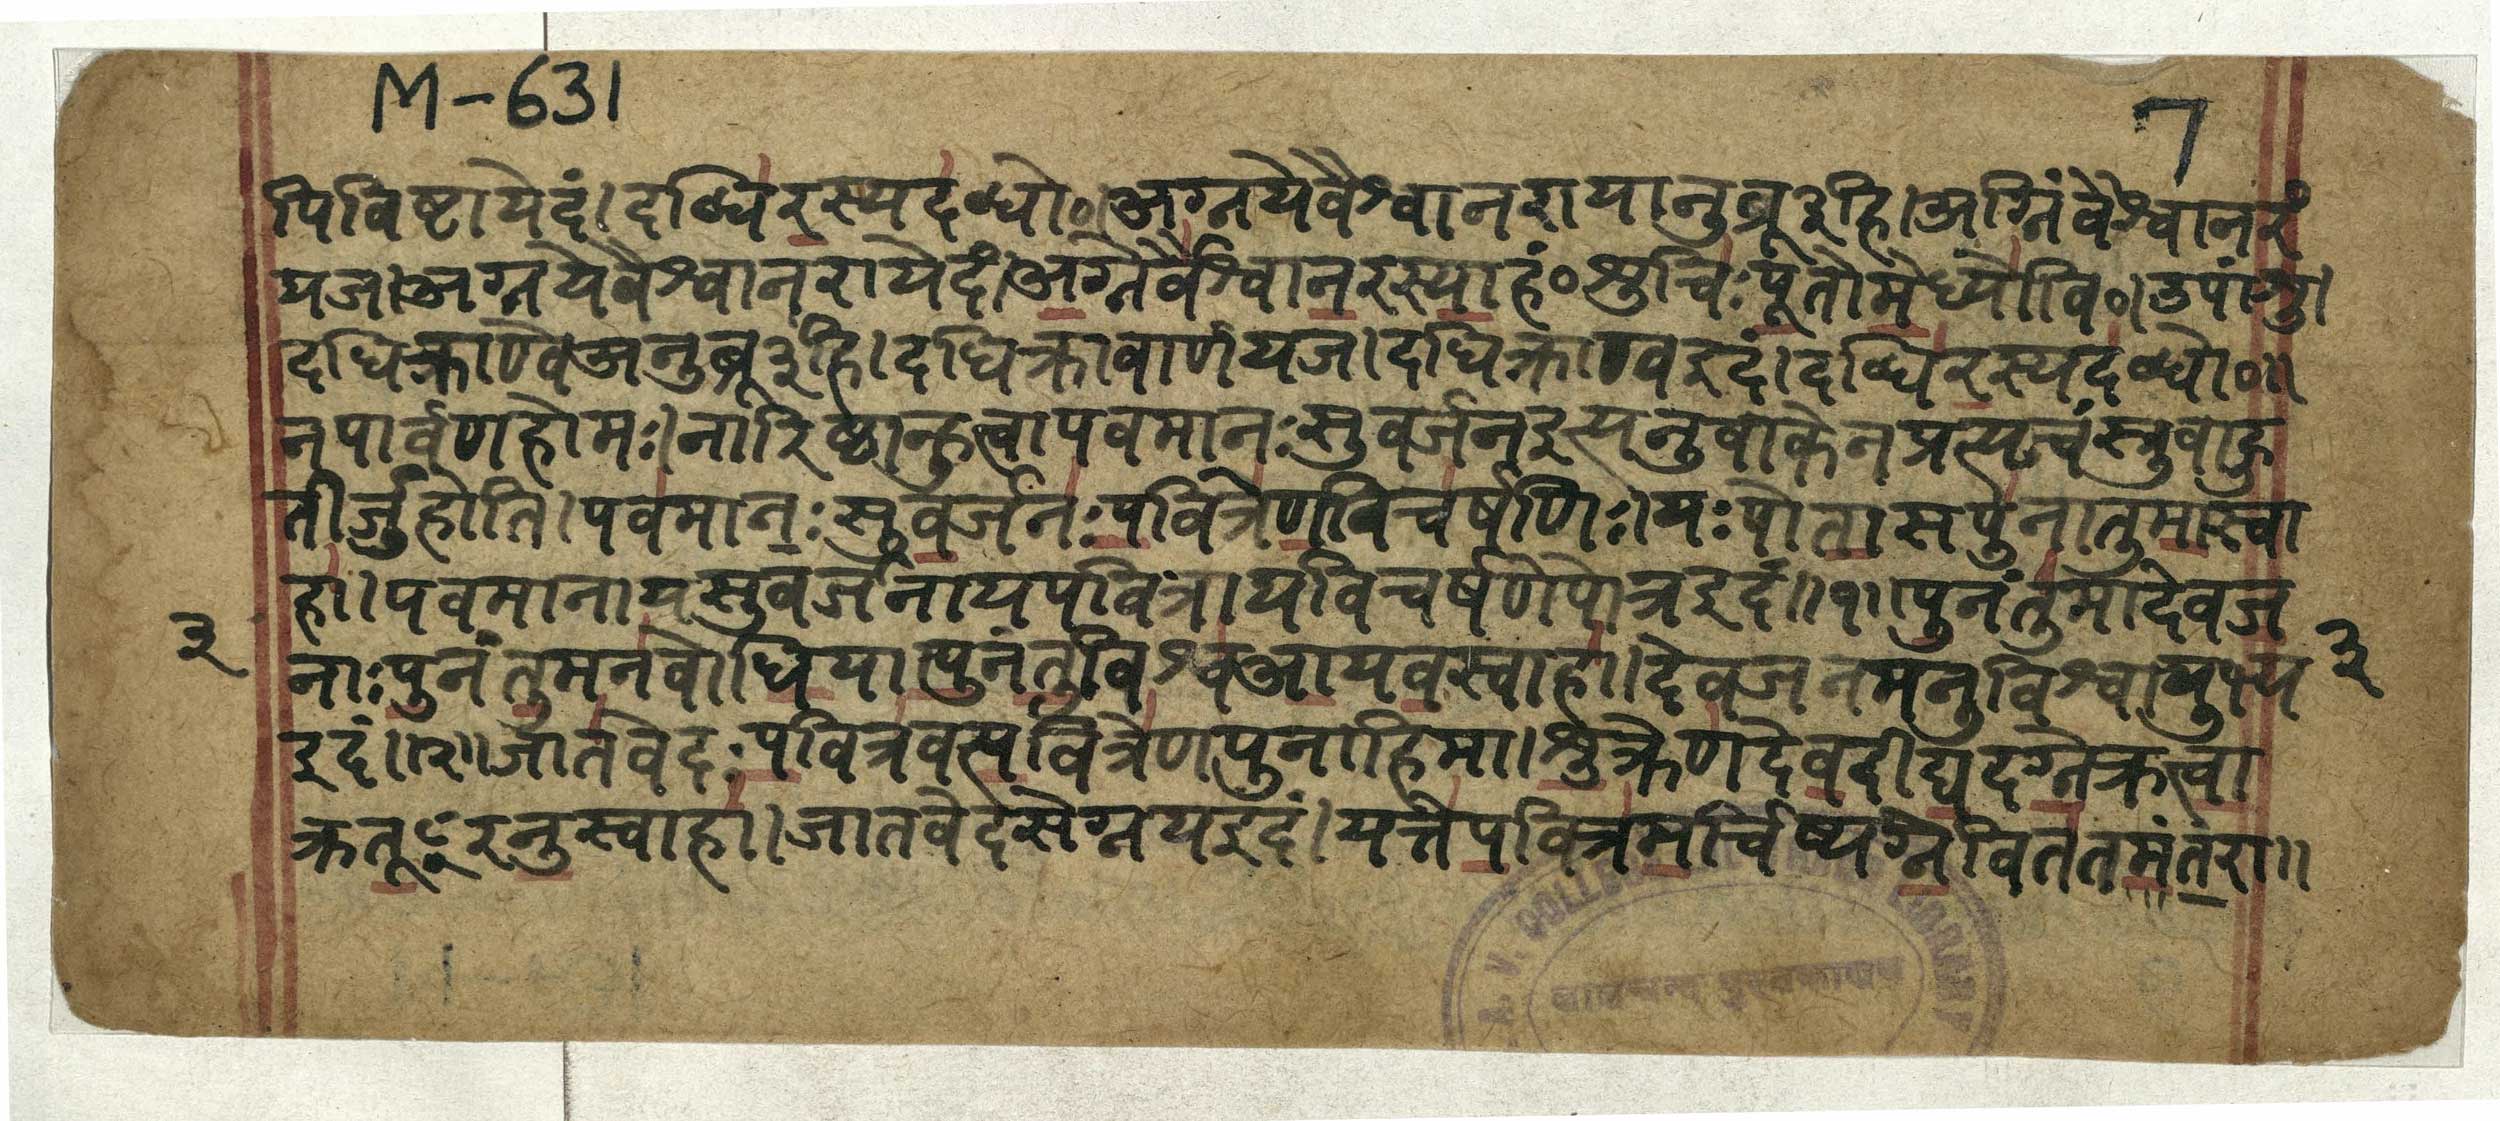 M-631
7
पिविष्टायेदं।दब्धिरस्यदब्धो०।अग्नयेवैश्वानरायानुब्रू३हि।अग्निंवैश्वानरं
यज।अग्नयेवैश्वानरायेदं।अग्नेर्वैश्वानरस्याहं०शुचिःपूतोमेध्योवि०।उपांशु।
दधिक्राण्वेअनुब्रू३हि।दधिक्रावाणंयज।दधिक्राण्वइदं।दब्धिरस्यदब्धो०॥
नपार्वणहोमः।नारिष्ठान्हुत्वापवमानःसुवर्जनइत्यनुवाकेनप्रत्यृचंस्त्रुवाहु
तीर्जुहोति।पवमानःसुवर्जनःपवित्रेणविचर्षणिः।यःपोतासपुनातुमास्वा
हा।पवमानायसुवर्जनायपवित्रायविचर्षणेपोत्रइदं॥१॥पुनंतुमादेवज
नाःपुनंतुमनवोधियापुनंतुविश्वआयवस्वाहा।देवजनमनुविश्वायुभ्य
इदं॥२॥जातवेदःपवित्रवत्पवित्रेणपुनाहिमा।शुक्रेणदेवदीद्यदग्नेक्रत्वा
क्रतूꣳरनुस्वाहा।जातवेदसेग्नयइदं।यत्तेपवित्रमर्चिष्यग्नेविततमंतरा॥
३
३
लालचन्द पुस्तकालय